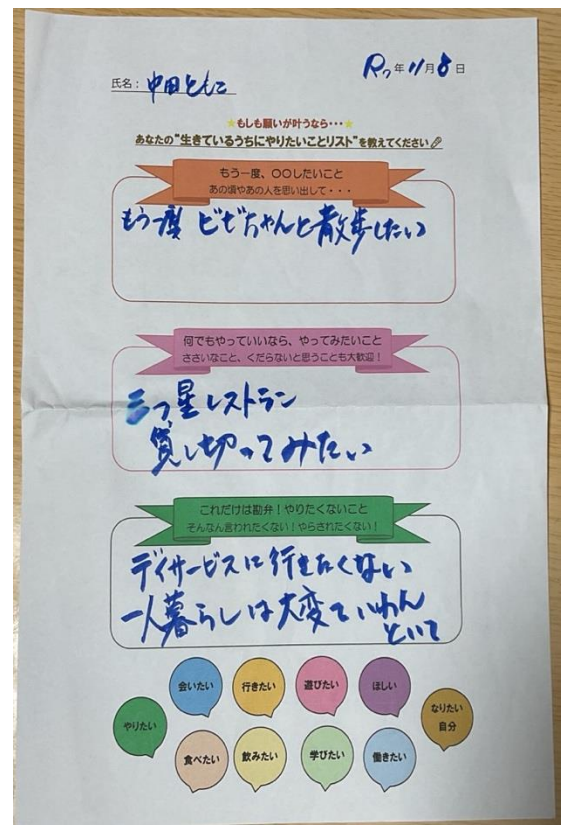 R7年11月8日
氏名：中田ともこ
★もしも願いが叶うなら・・・★
あなたの"生きているうちにやりたいことリスト"を教えてください
もう一度、〇〇したいこと
あの頃やあの人を思い出して・・・
もう一度 ビゼちゃんと散歩したい
何でもやっていいなら、やってみたいこと
ささいなこと、くだらないと思うことも大歓迎！
三つ星レストラン
貸し切ってみたい
これだけは勘弁！やりたくないこと
そんなん言われたくない！やらされたくない！
デイサービスに行きたくない
一人暮らしは大変ていわん
といて
会いたい
行きたい
遊びたい
ほしい
やりたい
なりたい
自分
食べたい
飲みたい
学びたい
働きたい